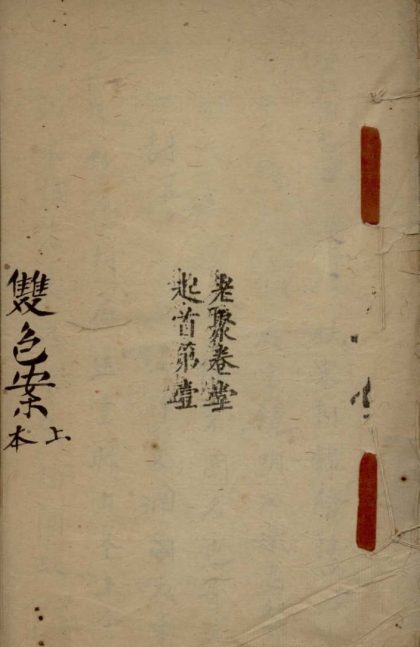 老聚卷堂
起首第壹
雙色案
上本